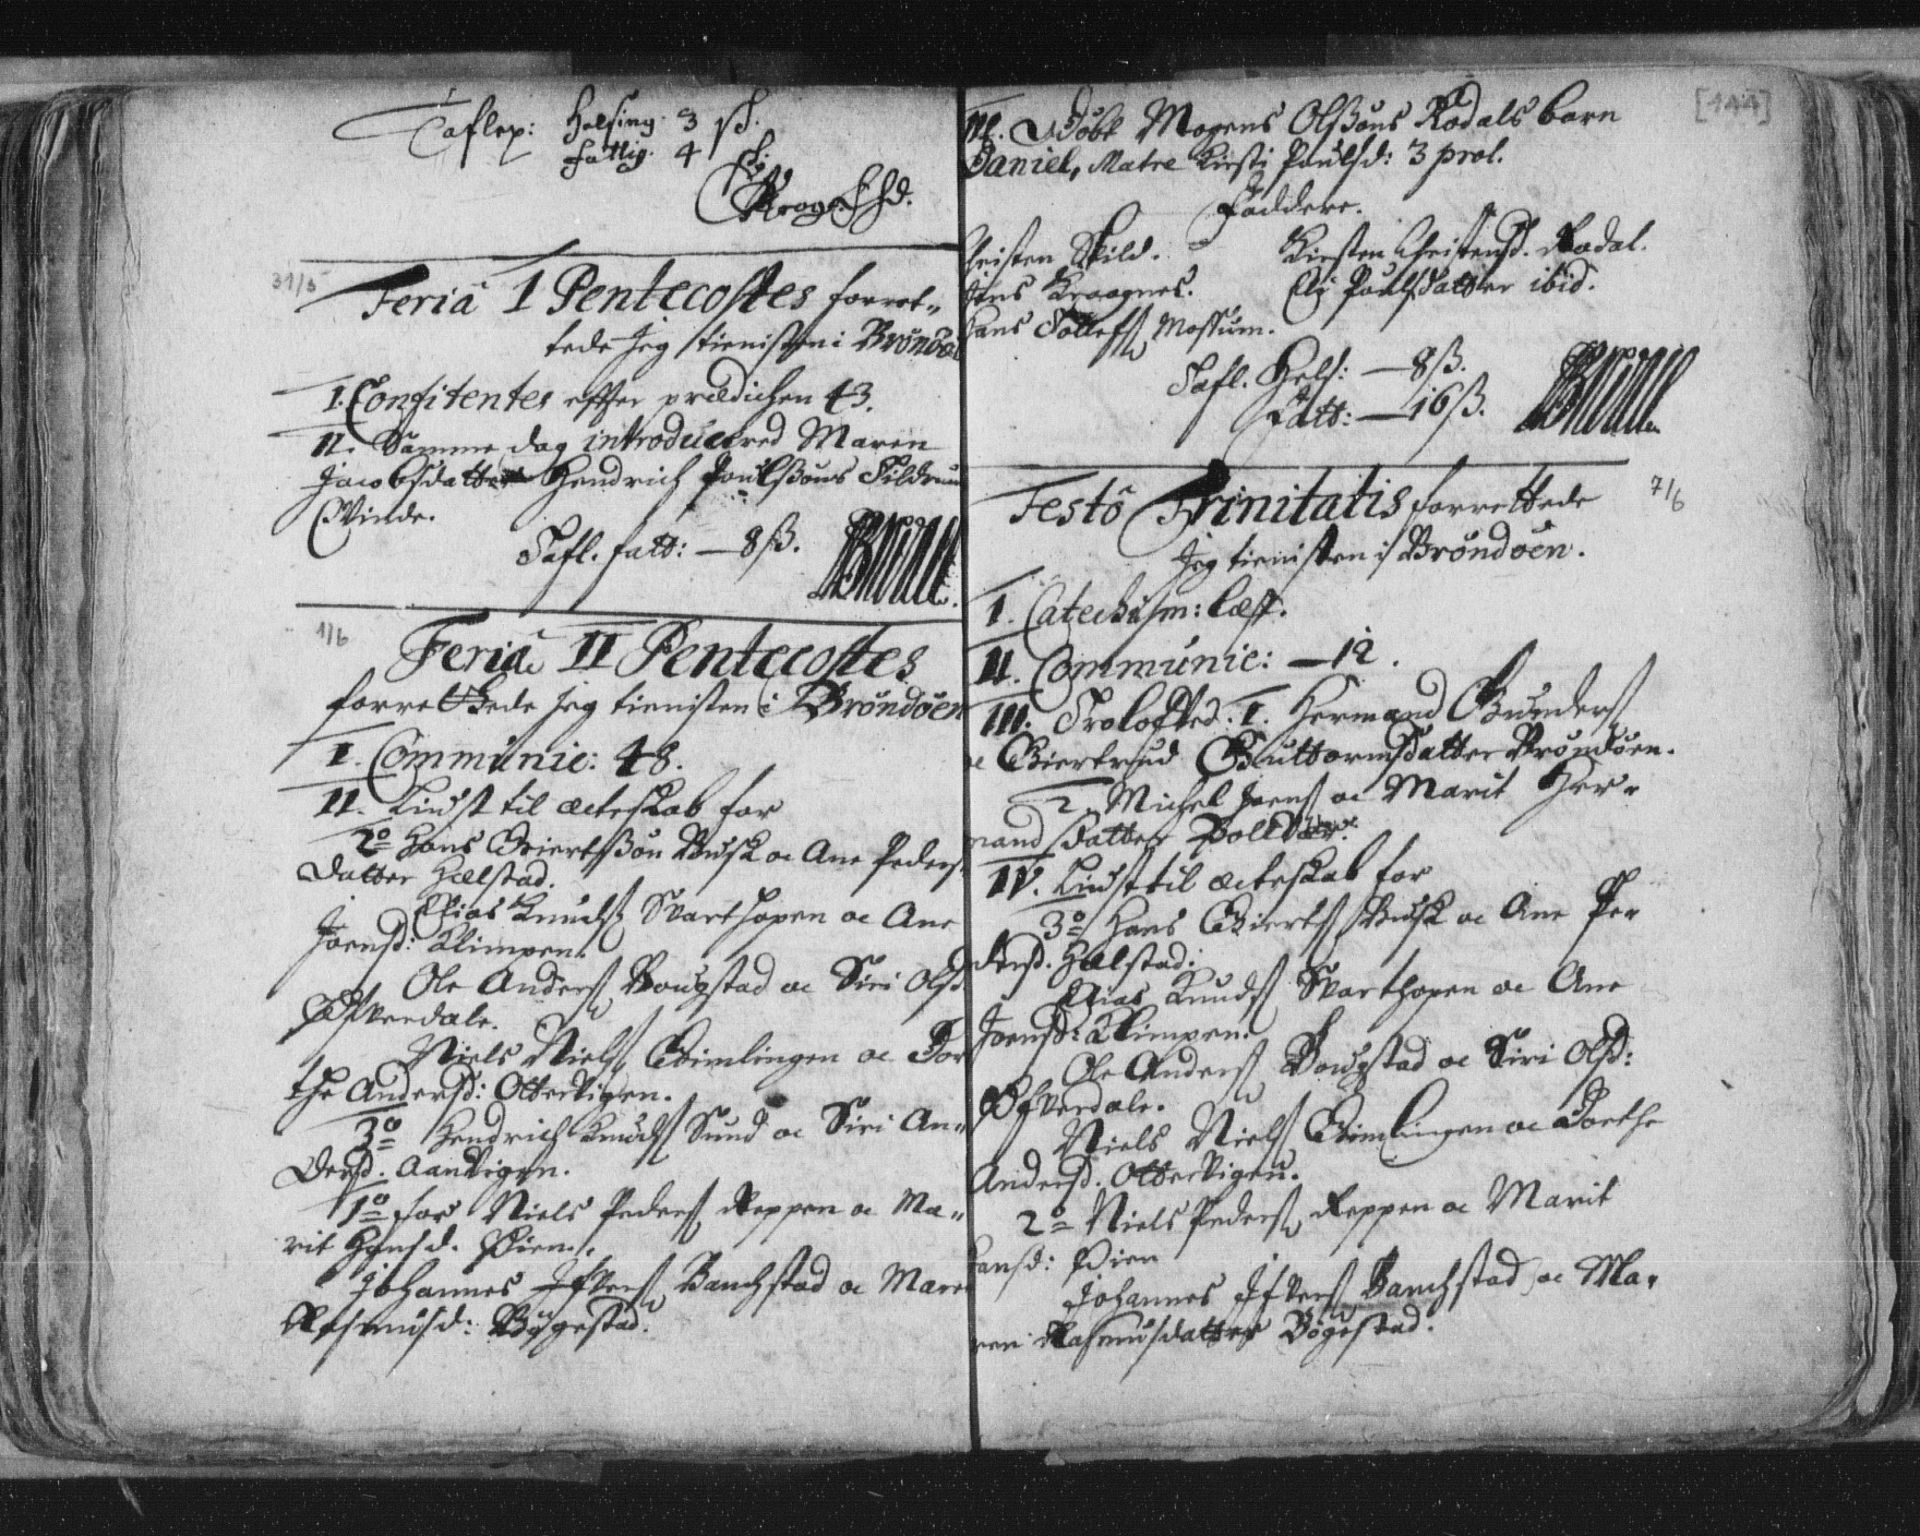 Taflex: Helsing. 3 sk.
fattig. 4
31/5
Feriâ I Pentecostes forret„
tede Jeg tienisten i Brøndøe
I. Confitentes effter prædichen 43.
II. Samme dag introducered Maren
Jacobsdatter Hendrich Poulsøns Tildrum
Qvinde.
Tafl. fatt: — 8 ß.
1/6
Feriâ II Pentecostes
forrettede Jeg tienisten i Brøndøen
I. Communic: 48.
II. Liust til æcteskab for
2º Hans Giertsøn Busk oc Ane Peders„
datter Hælstad.
Elias Knuds. Svarthopen oc Ane
Joensd: Klimpen.
Ole Anders. Bougstad oc Siri Olsd
Øfverdale.
Niels Niels. Gimlingen oc Dor
the Andersd: Ottervigen.
3º Hendrich Knuds. Sund oc Siri An„
dersd. Aandvigen.
1º for Niels Peders. Reppen oc Ma„
rit Hansd. Øien.
Johannes Ifvers. Banchstad oc Maren
Rasmusd: Bøgestad.
[144]
III. Døbt Mogens Olsøns Rødals barn
Daniel, Matre Kirsti Poulsd: 3 prol.
Faddere.
Christen Skild.
Kirsten Christensd. Rødal.
Jens Kraagnes.
Eli Poulsdatter ibid.
Hans Tollefs. Mossum.
Tafl. Hels: — 8 ß.
Fatt: — 16 ß.
Festô Trinitatis forrettede
7/6
Jeg tienisten i Brøndøen.
I. Catechism: læst.
II. Communic: — 12.
III. Trolofved. 1. Hermand Gunders.
oc Giertrud Guttormsdatter Brøndøen.
2. Michel Joens. oc Marit Her„
mandsdatter Bollvær.
IV. Liust til æcteskab for
3º Hans Gierts. Busk oc Ane Pe„
dersd. Hælstad.
Elias Knuds. Svarthopen oc Ane
Joensd: Klimpen.
Ole Anders. Bougstad oc Siri Olsd:
Øfverdale.
Niels Niels. Gimlingen oc Dorthe
Andersd. Ottervigen.
2º Niels Peders. Reppen oc Marit
Hansd: Øien
Johannes Ifvers. Banchstad oc Ma„
ren Rasmusdatter Bøgestad.